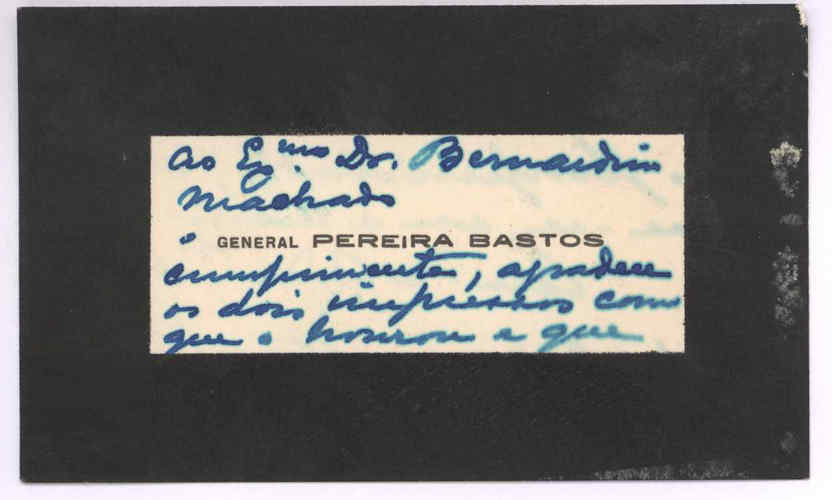 Ao Exmo Dr. Bernardino
Machado
o GENERAL PEREIRA BASTOS
cumprimenta, agradece
os dois impressos com
que o honrou e que